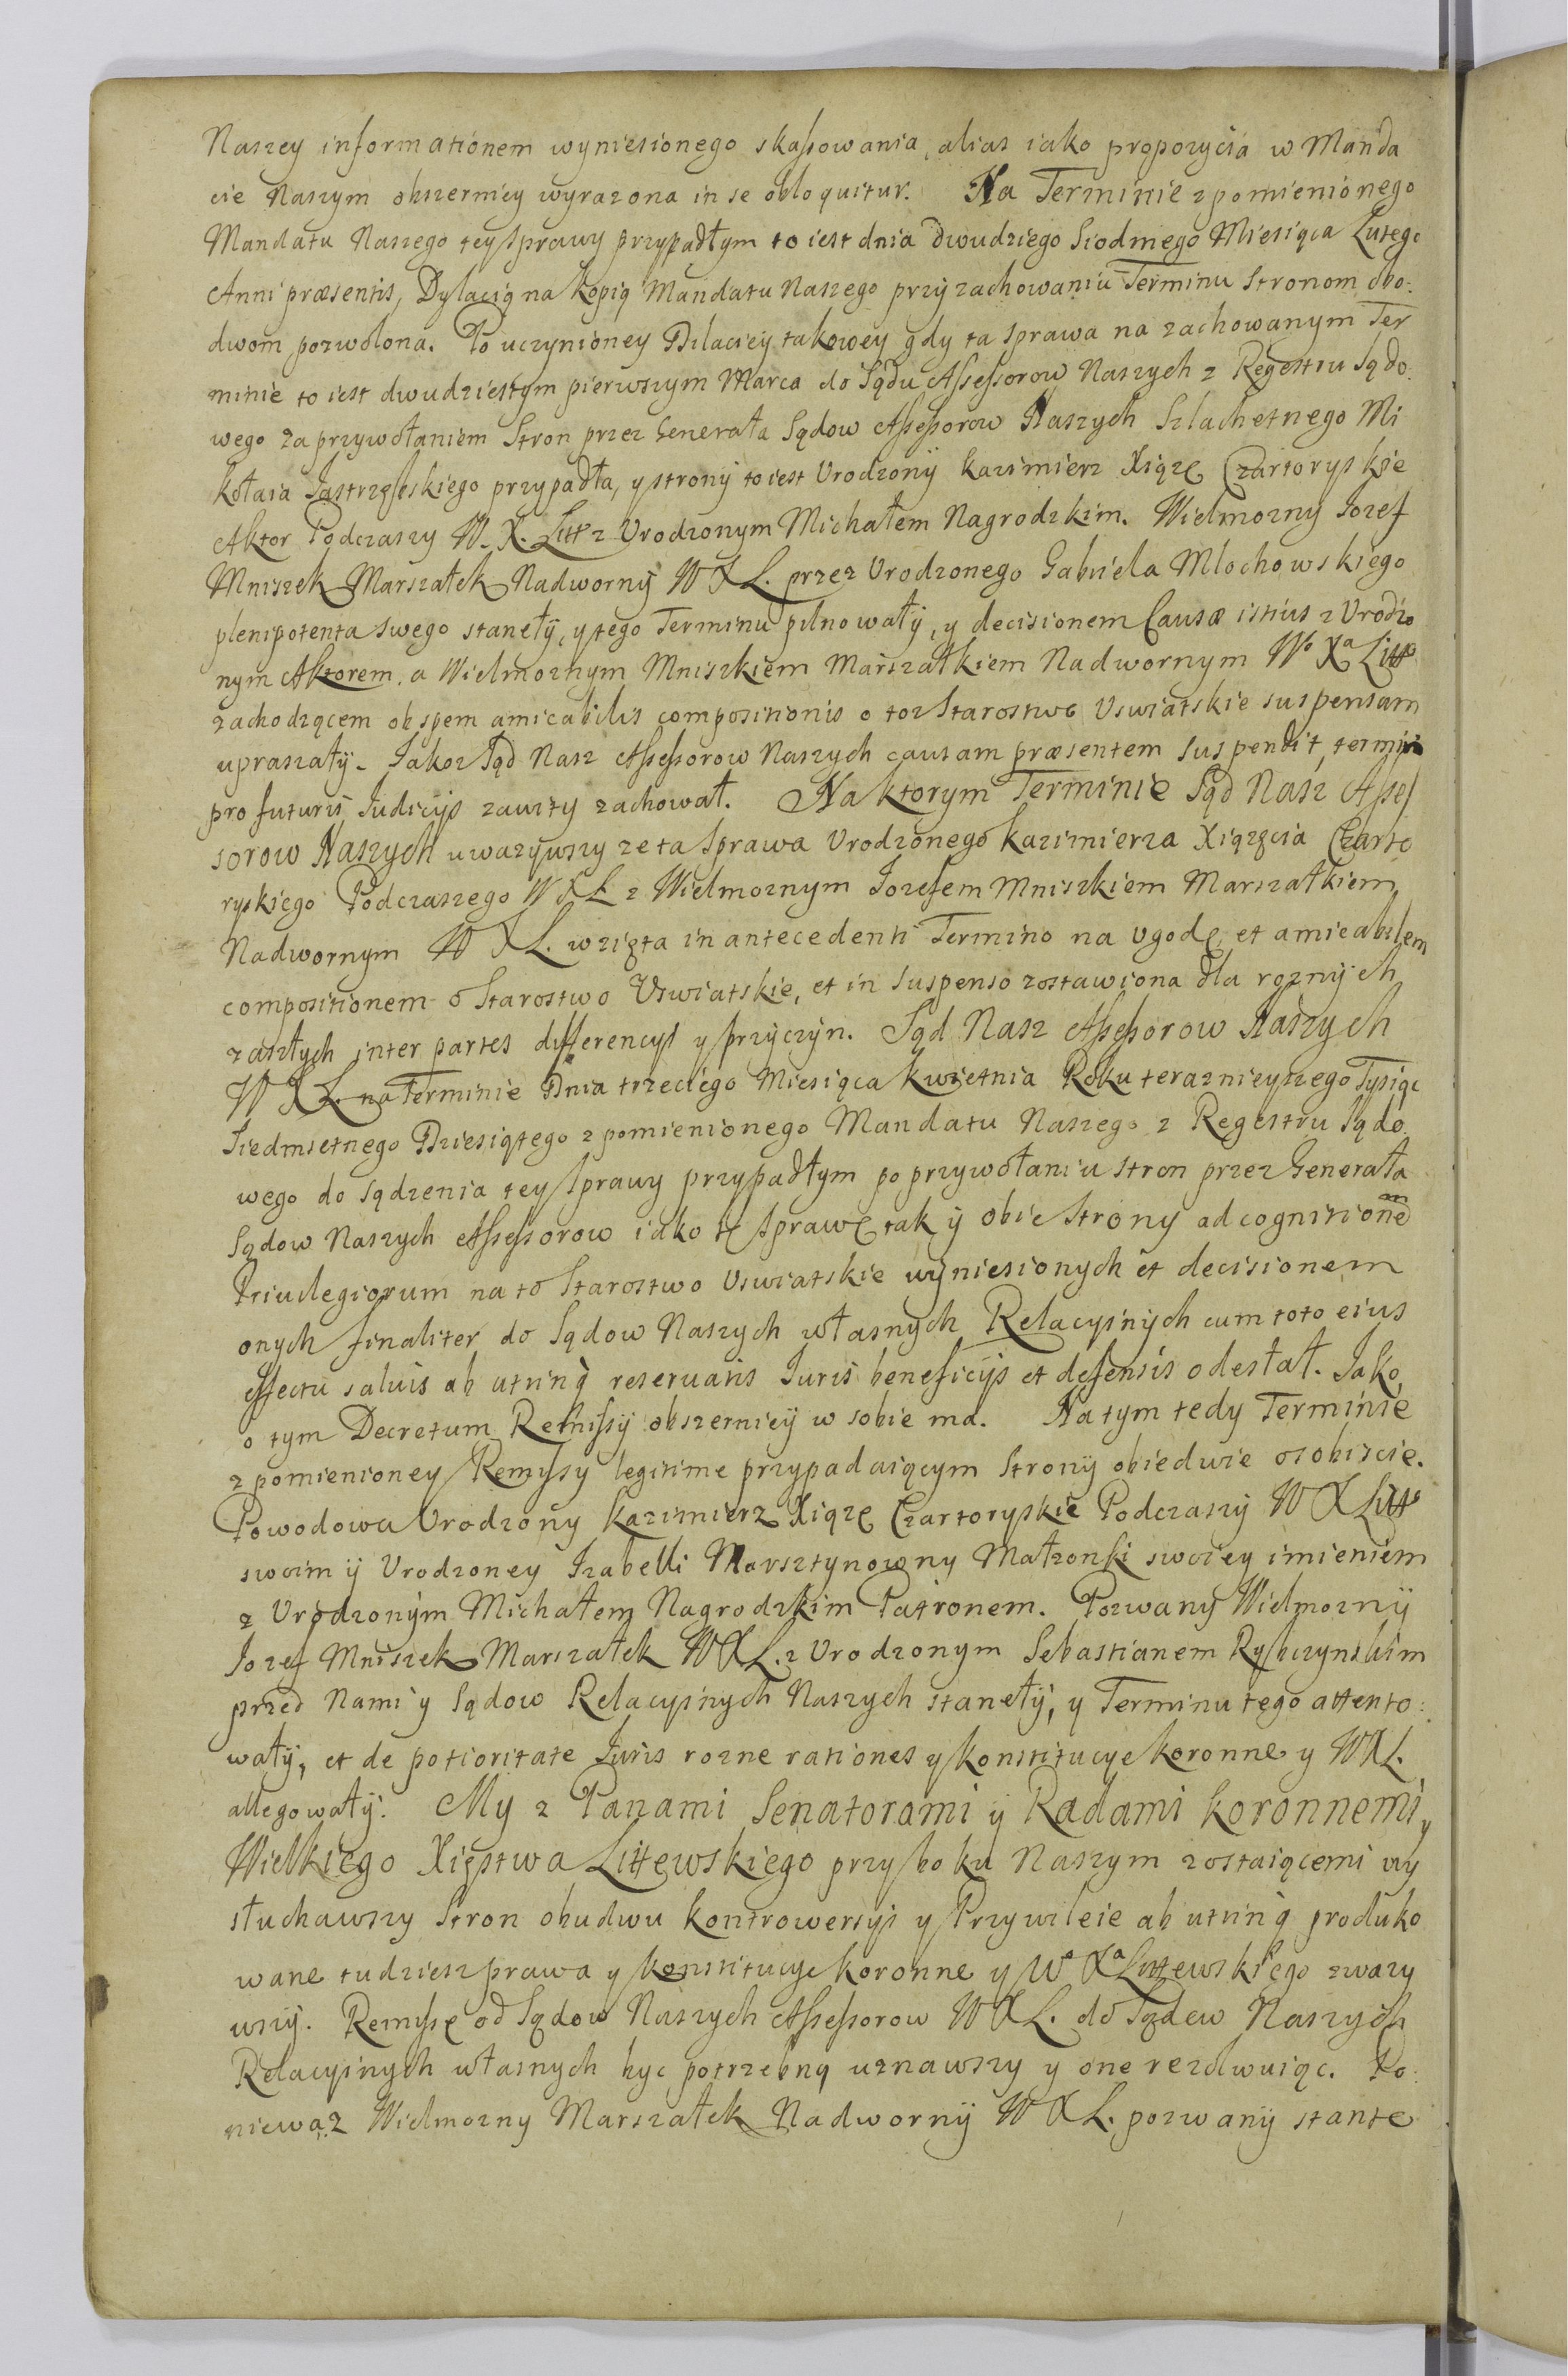 Naszey informationem wyniesionego skaßowania, alias iako propozycia w Manda
cie Naszym obszerniey wyrazona in se obloquitur. Na Terminie z pomienionego
Mandatu Naszego tey sprawy przypadłym to iest dnia dwudziego Siodmego Miesiąca Lutego
Anni præsentis, Dylacią na kopią Mandatu Naszego przy zachowaniu Terminu Stronom obo:
dwom pozwolona. Po uczynioney Dilaciey takowey gdy ta sprawa na zachowanym Ter
minie to iest dwudziestym pierwszym Marca do Sądu Aßeßorow Naszych z Regestru Sądo:
wego za przywołaniem Stron przez Generała Sądow Aßeßorow Naszych Szlachetnego Mi
kołaia Jastrzęßskiego przypadła, y strony to iest Vrodzony Kazimierz Xiąze Czartoryskie
Aktor Podczaszy W. X. Litt z Vrodzonym Michałem Nagrodzkim. Wielmozny Jozef
Mniszek Marszałek Nadworny W X L. przez Vrodzonego Gabriela Mlochowskiego
plenipotenta swego stanęły, y tego Terminu pilnowały, y decisionem Causæ istius z Vrodzo
nym Aktorem. a Wielmoznym Mniszkiem Marszałkiem Nadwornym Wo Xa Litto
zachodzącem ob spem amicabilis compositionis o toz Starostwo Uswiatskie suspensam
upraszały. Jakoz Sąd Nasz Aßeßorow Naszych causam præsentem suspendit, termin
pro futuris Judicijs zawity zachował. Na ktorym Terminie Sąd Nasz Aßeß
sorow Naszych uwazywszy ze ta Sprawa Vrodzonego Kazimierza Xiązęcia Czarto
ryskiego Podczaszego W X L z Wielmoznym Jozefem Mniszkiem Marszałkiem
Nadwornym W X L. wzięta in antecedenti Termino na Ugodę, et amicabilem
compositionem o Starostwo Uswiatskie, et in suspenso zostawiona dla roznych
zaszłych inter partes differencyi y przyczyn. Sąd Nasz Aßeßorow Naszych
W X L. na Terminie Dnia trzeciego Miesiąca Kwietnia Roku terazniejszego Tysiąc
Siedmsetnego Dziesiątego z pomienionego Mandatu Naszego z Regestru Sądo
wego do sądzenia tey sprawy przypadłym po przywołaniu stron przez Generała
Sądow Naszych Aßeßorow iako tę sprawę tak y obie Strony ad cognitionem
Priuilegiorum na to Starostwo Uswiatskie wyniesionych et decisionem
onych finaliter do Sądow Naszych własnych Relacyinych cum toto eius
effectu saluis ab utrinq reseruatis Juris beneficijs et defensis odesłał. Jako
o tym Decretum Remißy obszerniey w sobie ma. Na tym tedy Terminie
z pomienioney Remyßy legitime przypadaiącym Strony obiedwie osobiscie.
Powodowa Vrodzony Kazimierz Xiąze Czartoryskie Podczaszy W X Litto
swoim y Vrodzoney Izabelli Marsztynowny Małzonki swoiey imieniem
z Vrodzonym Michałem Nagrodzkim Patronem. Pozwany Wielmozny
Jozef Mniszek Marszałek W X L. z Vrodzonym Sebastianem Rybczynskim
przed Nami y Sądow Relacyinych Naszych stanęły, y Terminu tego attento:
wały, et de potioritate Juris rozne rationes y Konstitucye Koronne y W X L.
allegowały. My z Panami Senatorami y Radami Koronnemi y
Wielkiego Xięstwa Littewskiego przy boku Naszym zostaiącemi wy
słuchawszy Stron obudwu Kontrowersyi y Przywileie ab utrinq produko
wane tudziesz prawa y Konstitucye Koronne y Wo Xa Littewskiego zwazy
wszy. Remyßę od Sądow Naszych Aßeßorow W X L. do Sądow Naszych
Relacyinych własnych być potrzebną uznawszy y one rezolwuiąc. Po:
niewaz Wielmozny Marszałek Nadworny W X L. pozwany stante